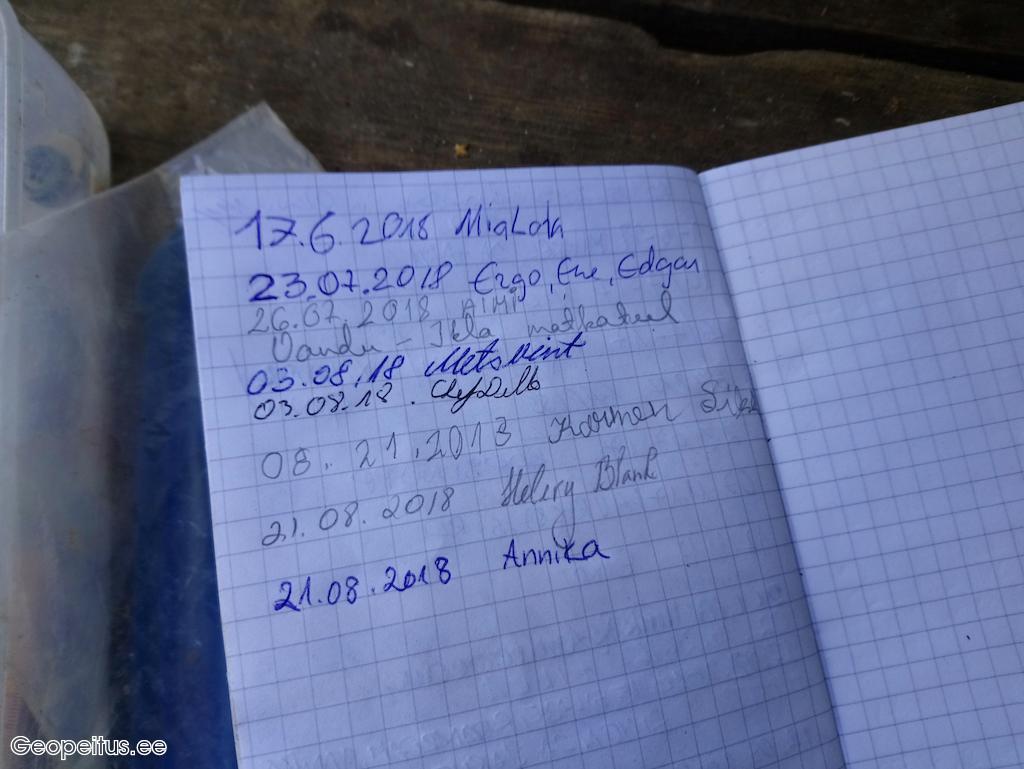 17.6.2018 MiaLota
23.07.2018 Ergo, Ene, Edgar
26.07.2018 AIMI
Vandu - Ikla matkateel
03.08.18 Metsvint
03.08.18.
08.21.2013 Karmen
21.08.2018 Helery Blank
21.08.2018 Annika
Geopeitus.ee